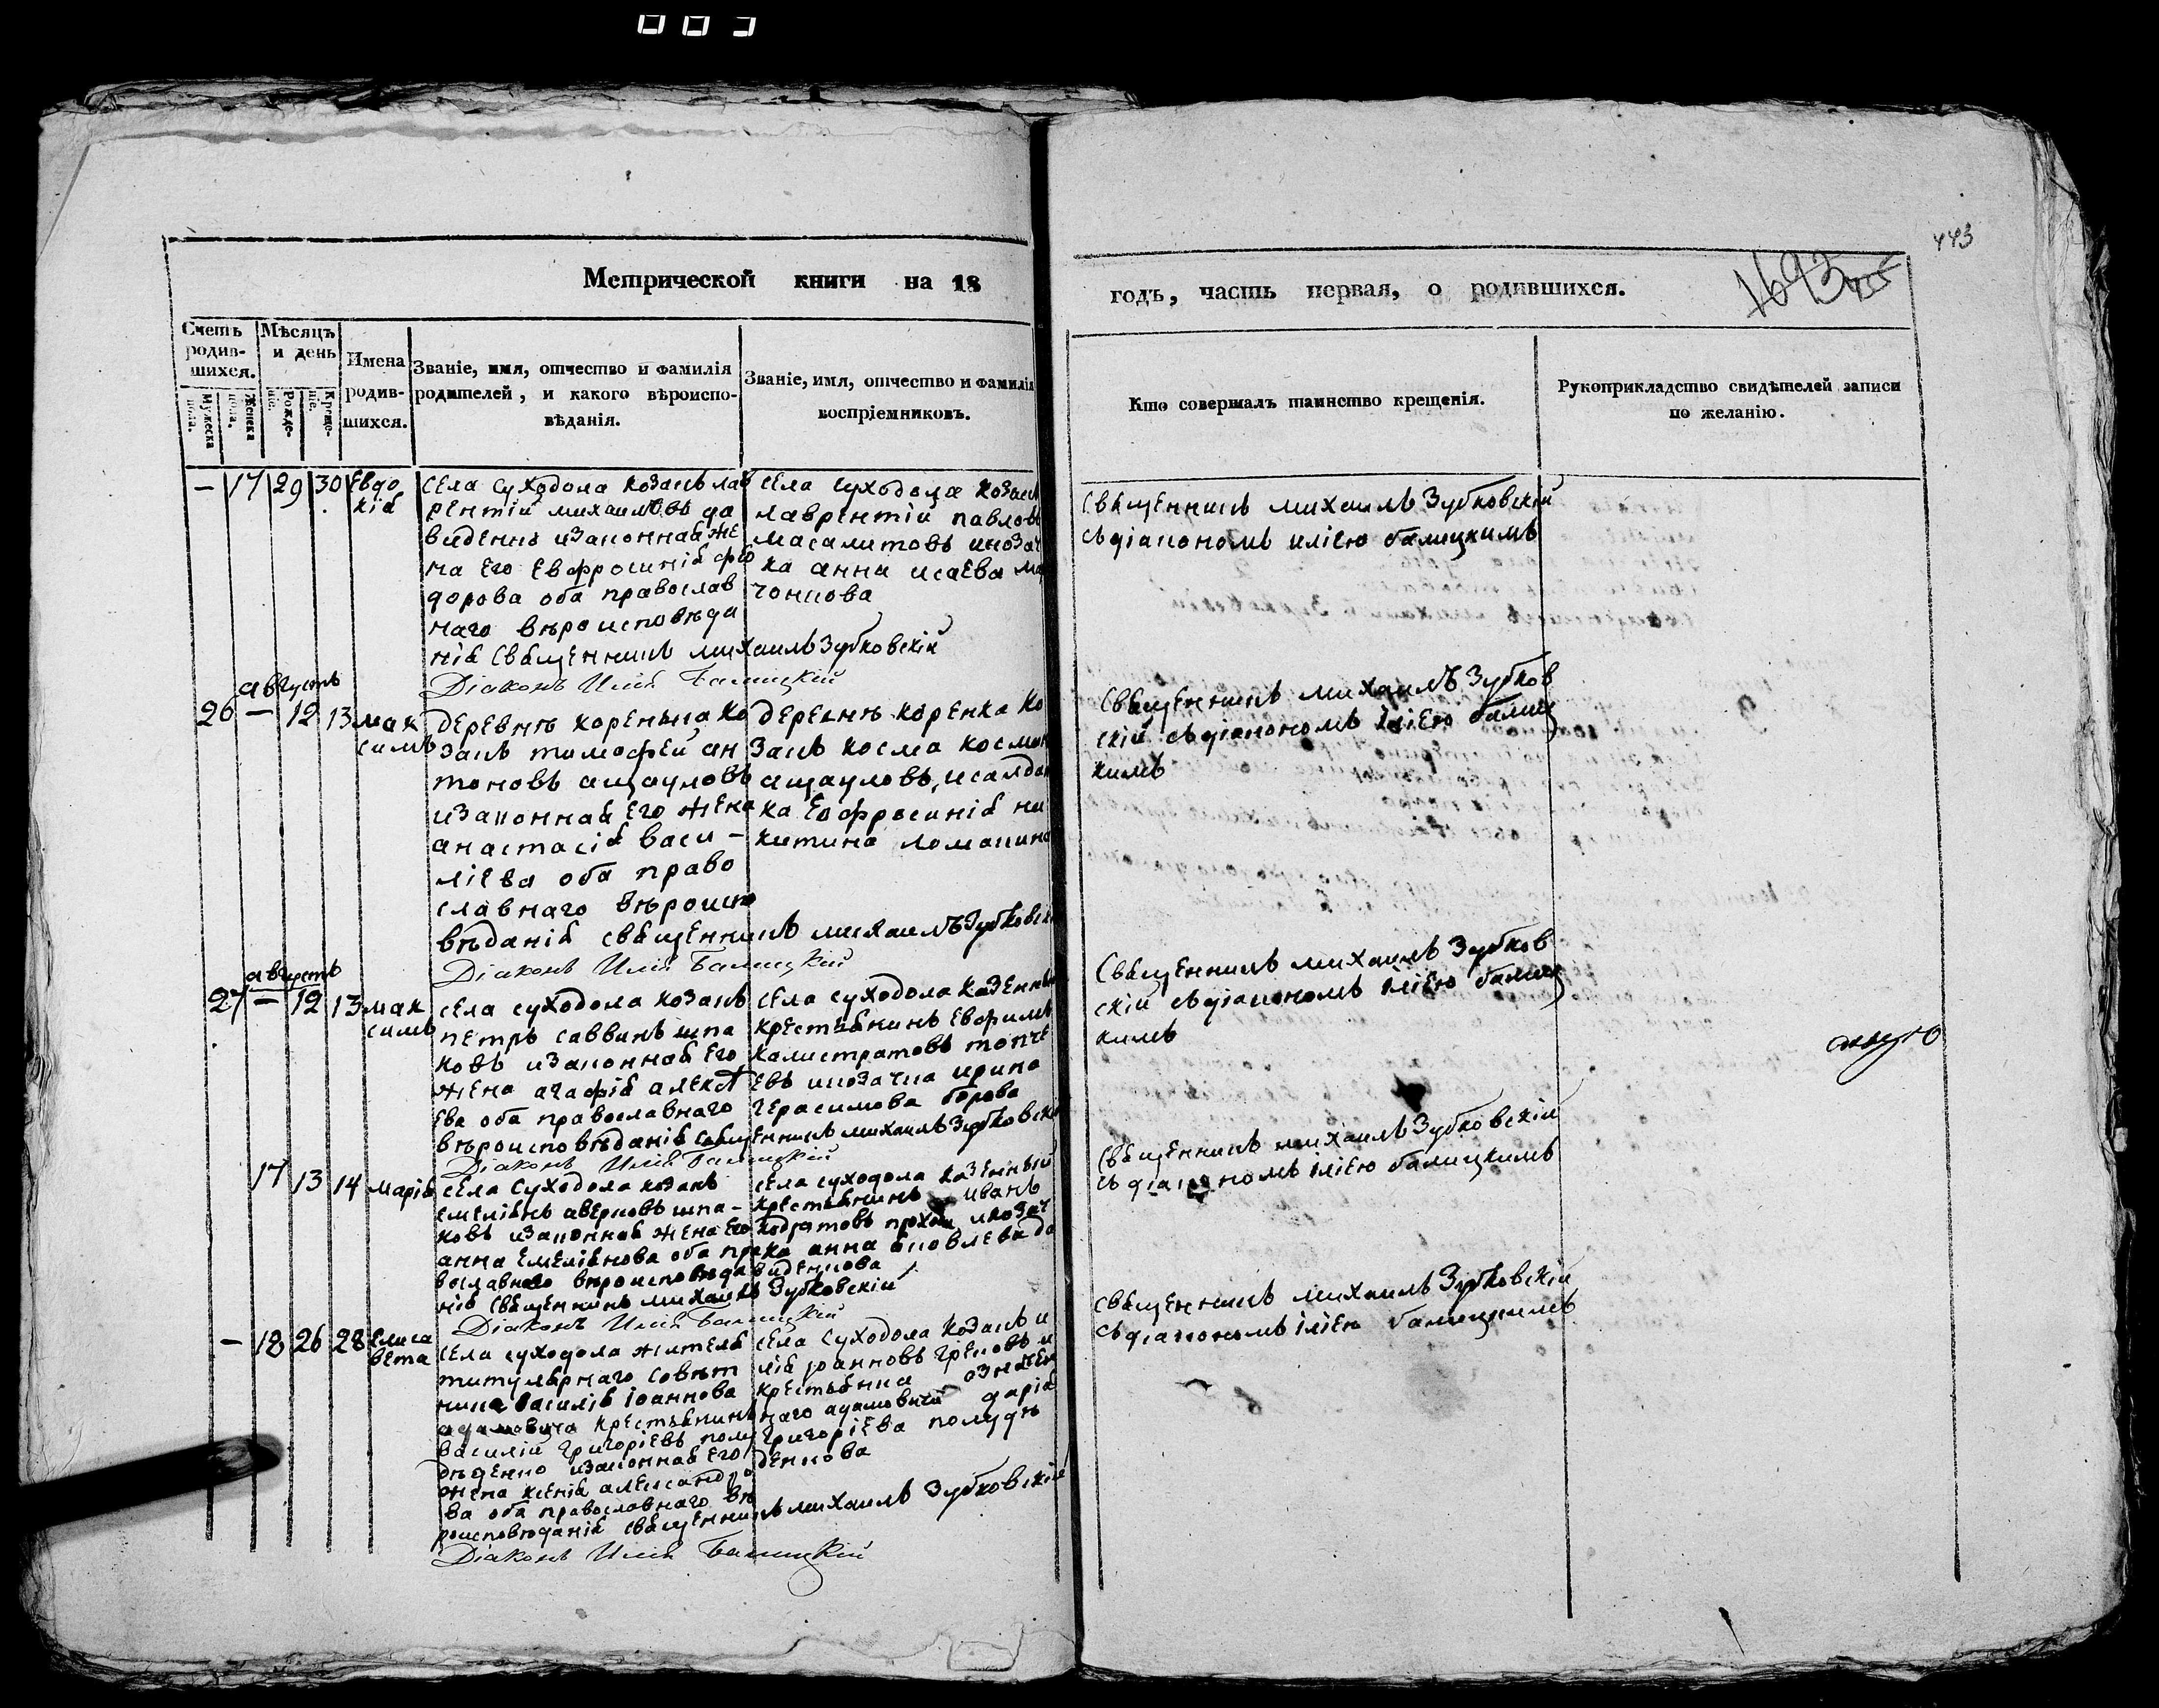 443
1693
Метрической книги на 18
годъ, часть первая, о родившихся.
Счетъ родив-шихся.
Мужеска пола.
Женска пола.
Мѣсяцъ и день
Рожде-ніе.
Креще-ніе.
Имена родив-шихся.
Званіе, имя, отчество и фамилія родителей, и какого вѣроиспо-вѣданія.
Званіе, имя, отчество и фамилія воспріемниковъ.
Кто совершалъ таинство крещенія.
Рукоприкладство свидѣтелей записи по желанію.
— 17 29 30 Евдо
кія
села Суходола козакъ лав
рентій михаиловъ да
виденко изаконная же
на его Евфросинія фео
дорова оба православ
наго вѣроисповѣда
нія Священникъ михаилъ Зубковскій
Діаконъ Илія Балицкій
села Суходола козакъ
лаврентій павловъ
масалитовъ икозач
ка анна исаева
Священникъ михаилъ Зубковскій
съдіакономъ иліею балицкимъ
августъ
26 — 12 13 мак
симъ
деревнѣ коренька ко
закъ тимофей ан
тоновъ ащауловъ
изаконная его жена
анастасія васи –
ліева оба право
славнаго вѣроиспо
вѣданія священникъ михаилъ Зубковскі
Діаконъ Илія Балицкій
деревнѣ коренка ко
закъ косма косми
ащауловъ, исалдат
ка Евфросинія ни
китина ломакина
Священникъ михаилъ Зубков
скій съдіакономъ іліею балиц
кимъ
августъ
27 — 12 13 мак
симъ
села суходола козакъ
петръ саввинъ шпа
ковъ изаконная его
жена агафія алексѣ
ева оба православнаго
вѣроисповѣданія священникъ михаилъ Зубковскі
Діаконъ Илія Балицкій
села суходола казенны
крестьянинъ Евфимъ
калистратовъ топче
евъ икозачка ирина
герасимова
Священникъ михаилъ Зубков
скій съдіакономъ іліею балиц
кимъ
17 13 14 марія
села Суходола козакъ
емеліянъ аверковъ шпа –
ковъ изаконная жена его
анна емеліянова оба пра
вославнаго вѣроисповѣда
нія священникъ михаилъ Зубковскій
Діаконъ Илія Балицкій
села суходола казенный
крестьянинъ иванъ
кодратовъ икозач
ка анна яковлева да
виденкова
Священникъ михаилъ Зубковскій
съдіакономъ іліею балицкимъ
— 18 26 28 Елиса
вета
села суходола жителя
титулярнаго совѣт
ника василія іоаннова
адамовича крестьянинъ
василій григоріевъ полу
дѣденко изаконная его
жена ксенія александро
ва оба православнаго вѣ
роисповѣданія священникъ михаилъ Зубковскій
Діаконъ Илія Балицкій
села Суходола козакъ и
лія іоанновъ грековъ и
крестьянка означен
наго адамовича дарія
григоріева полудѣ
денкова
священникъ михаилъ Зубковскій
съдіакономъ іліею балицкимъ